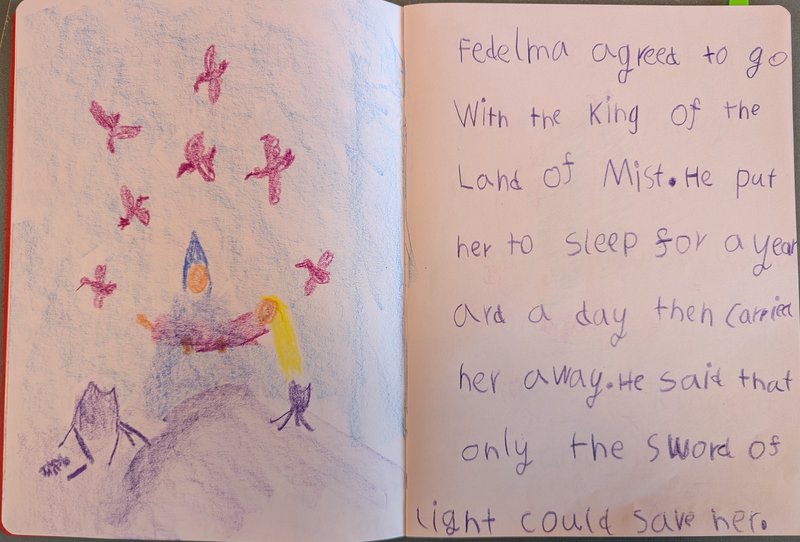 Fedelma agreed to go
With the King of the
Land of Mist. He put
her to sleep for a year
ard a day then carried
her away. He said that
only the sword of
light could save her.